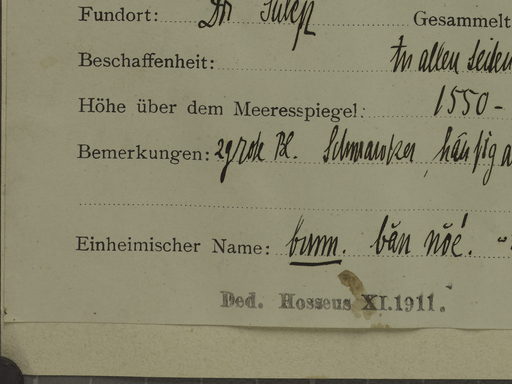 Fundort: Doi Sutep Gesammelt
Beschaffenheit: In allen Seiten
Höhe über dem Meeresspiegel: 1550-
Bemerkungen: Bl. Schmarotzer, häufig a
Einheimischer Name: burm. băn nŏé.
Ded. Hosseus XI.1911.